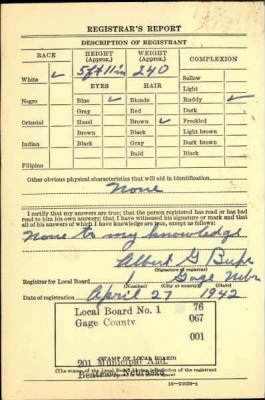 REGISTRAR'S REPORT
DESCRIPTION OF REGISTRANT
RACE HEIGHT (Approx.) WEIGHT (Approx.) COMPLEXION
White ✓ 5 ft 11 in 240 Sallow
Light
EYES HAIR
Negro Blue ✓ Blonde Ruddy ✓
Gray Red Dark
Oriental Hazel Brown ✓ Freckled
Brown Black Light brown
Indian Black Gray Dark brown
Bald Black
Filipino
Other obvious physical characteristics that will aid in identification
None
I certify that my answers are true; that the person registered has read or has had
read to him his own answers; that I have witnessed his signature or mark and that
all of his answers of which I have knowledge are true, except as follows:
None to my knowledge
Albert G
(Signature of registrar)
Registrar for Local Board 1 Gage Nebr
(Number) (City or county) (State)
Date of registration April 27 1942
Local Board No. 1 76
Gage County 067
001
201 Municipal Aud.
Beatrice, Nebraska
(STAMP OF LOCAL BOARD)
(The stamp of the Local Board having jurisdiction of the registrant